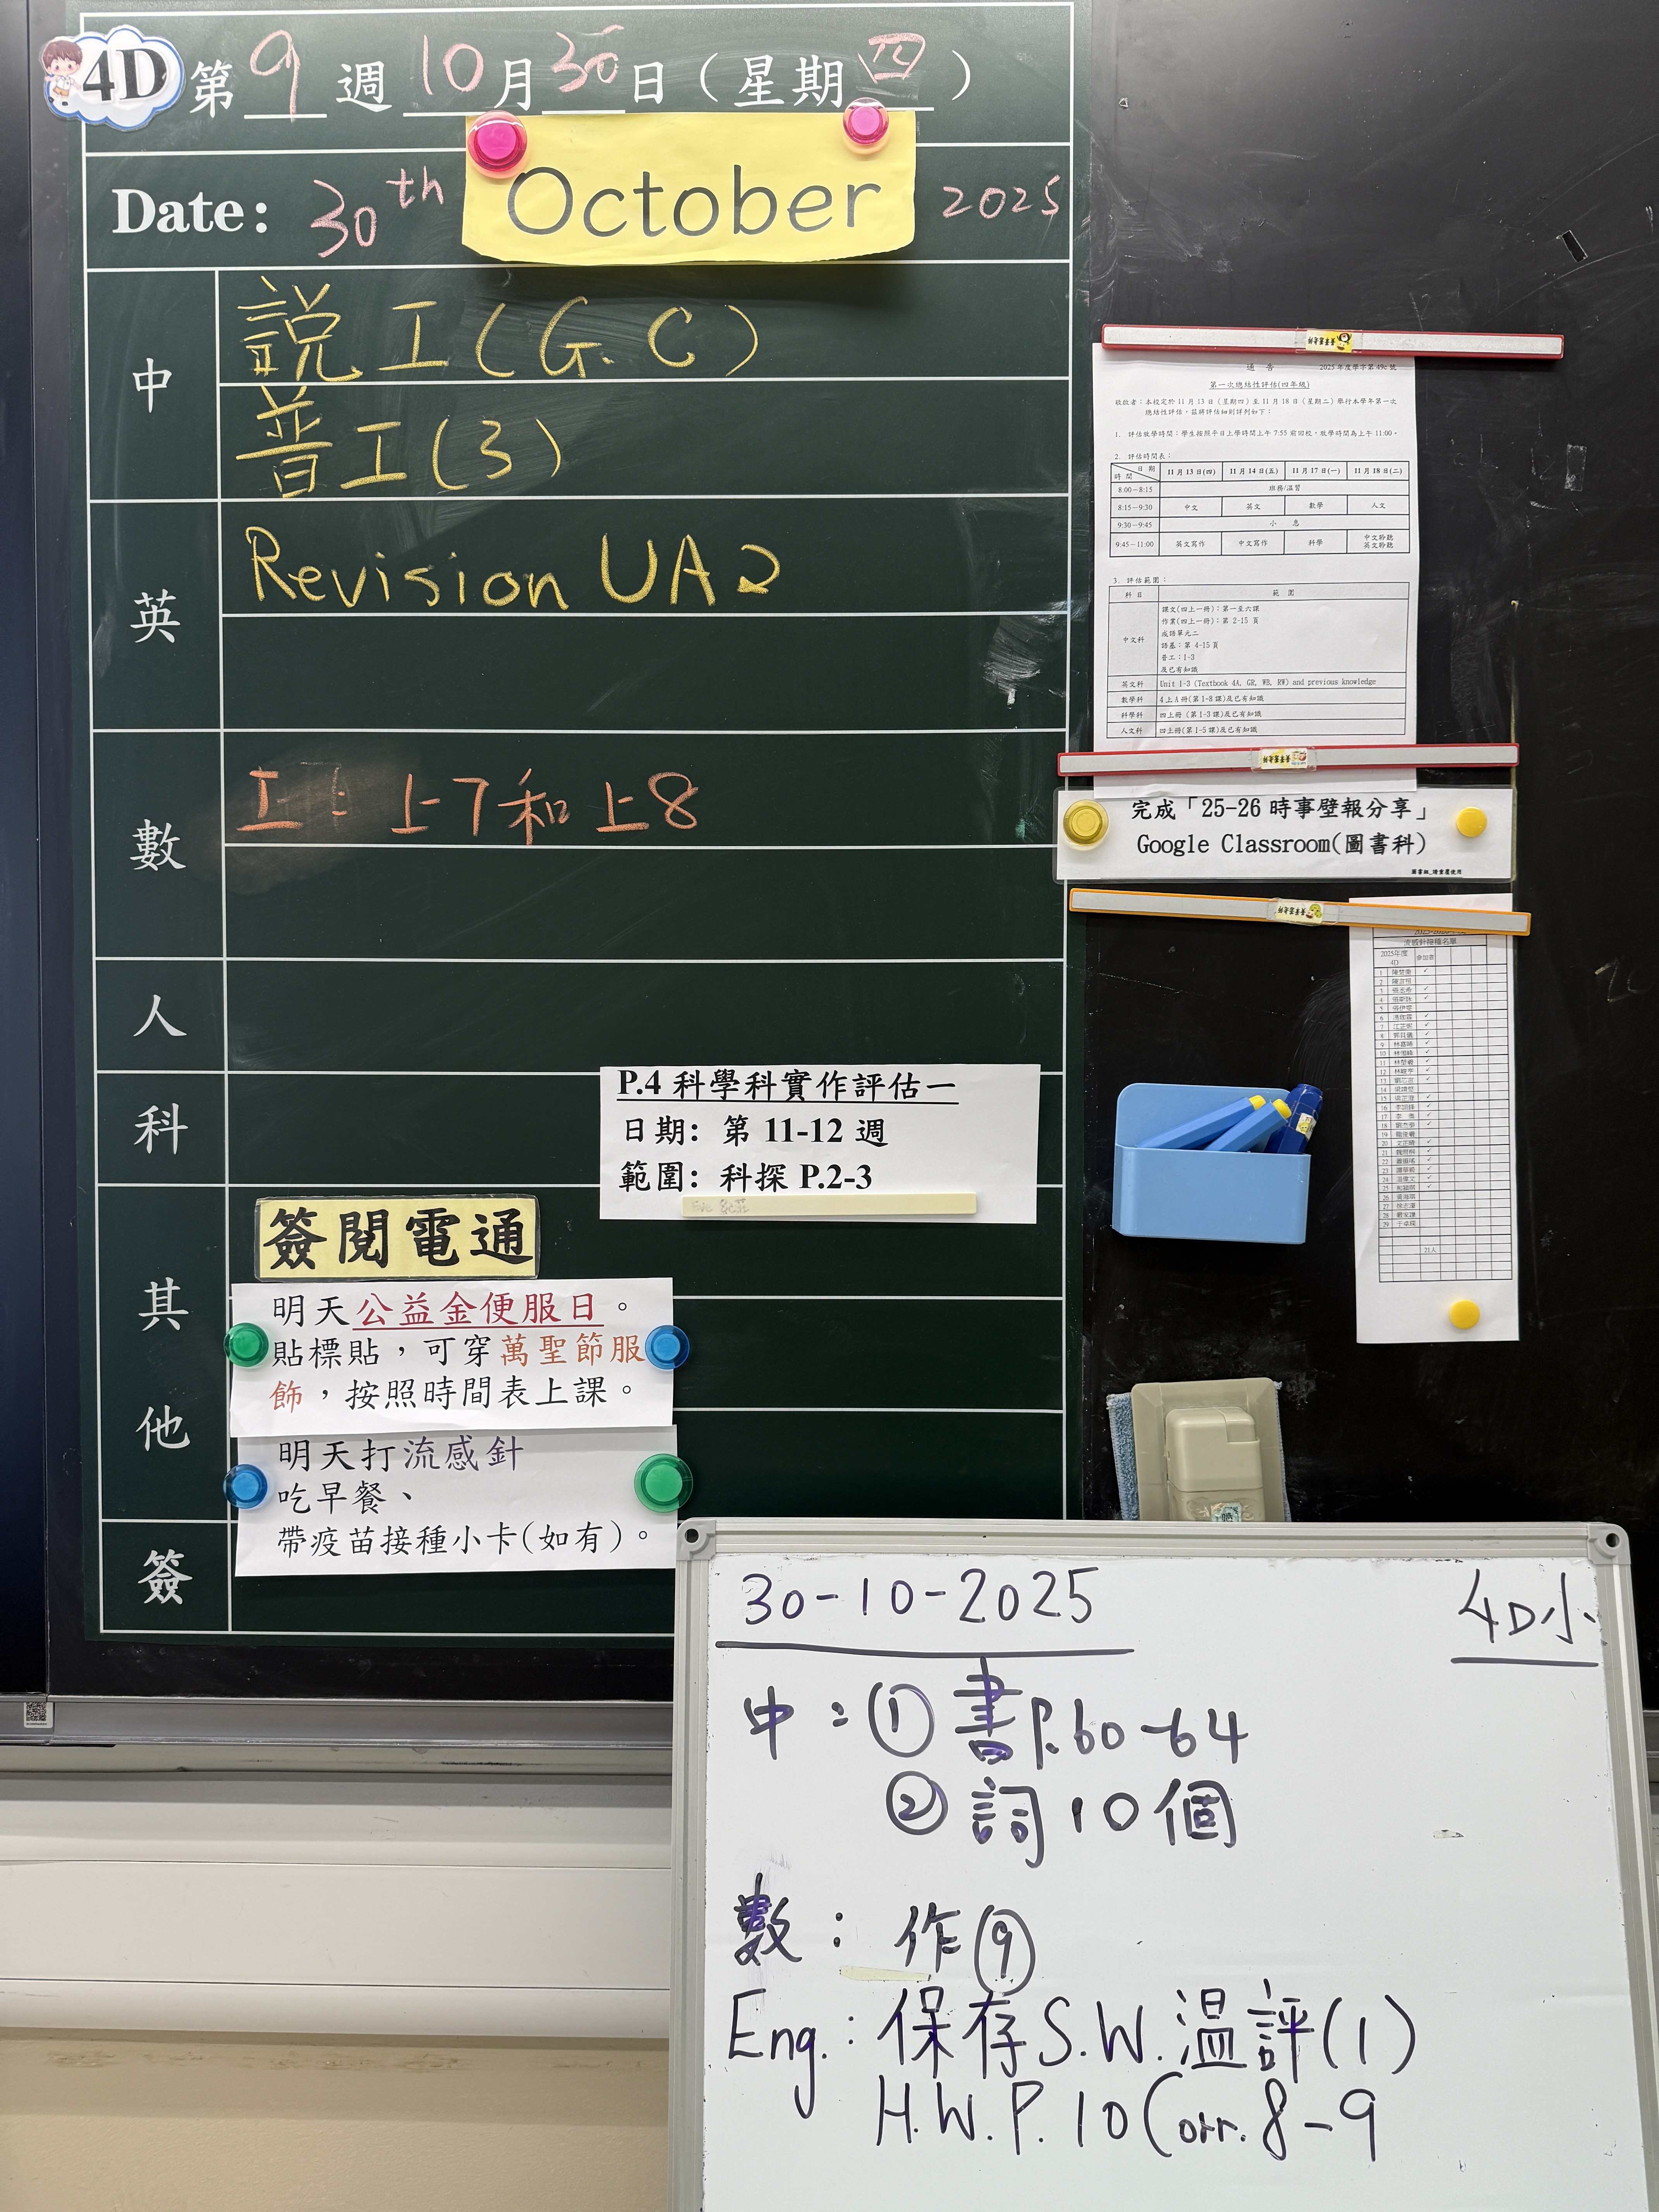 4D 第 9 週 10 月 30 日（星期 四 ）
Date: 30th October 2025
中
説工(G.C)
普工(3)
英
Revision UA2
數
工: 上7和上8
人
科
P.4 科學科實作評估一
日期: 第 11-12 週
範圍: 科探 P.2-3
其他
簽閱電通
明天公益金便服日。
貼標貼，可穿萬聖節服
飾，按照時間表上課。
明天打流感針
吃早餐、
帶疫苗接種小卡(如有)。
簽
通 告 2025 年度學字第 49c 號
第一次總結性評估(四年級)
敬啟者：本校定於 11 月 13 日（星期四）至 11 月 18 日（星期二）舉行本學年第一次
總結性評估，茲將評估細則詳列如下：
1. 評估放學時間：學生按照平日上學時間上午 7:55 前回校，放學時間為上午 11:00。
2. 評估時間表：
日期 時間 11 月 13 日(四) 11 月 14 日(五) 11 月 17 日(一) 11 月 18 日(二)
8:00－8:15 班務/溫習
8:15－9:30 中文 英文 數學 人文
9:30－9:45 小 息
9:45－11:00 英文寫作 中文寫作 科學 中文聆聽 英文聆聽
3. 評估範圍：
科目 範圍
中文科
課文(四上一冊)：第一至六課
作業(四上一冊)：第 2-15 頁
成語單元二
語基：第 4-15 頁
普工：1-3
及已有知識
英文科 Unit 1-3 (Textbook 4A, GR, WB, RW) and previous knowledge
數學科 4 上 A 冊(第 1-8 課)及已有知識
科學科 四上冊 (第 1-3 課)及已有知識
人文科 四上冊(第 1-5 課)及已有知識
完成「25-26 時事壁報分享」
Google Classroom(圖書科)
圖書組_請重覆使用
流感針接種名單
2025年度
4D
參加者
21人
30-10-2025 4D小
中：① 書P.60-64
② 詞10個
數： 作⑨
Eng.: 保存S.W.温評(1)
H.W.P.10 Corr.8-9